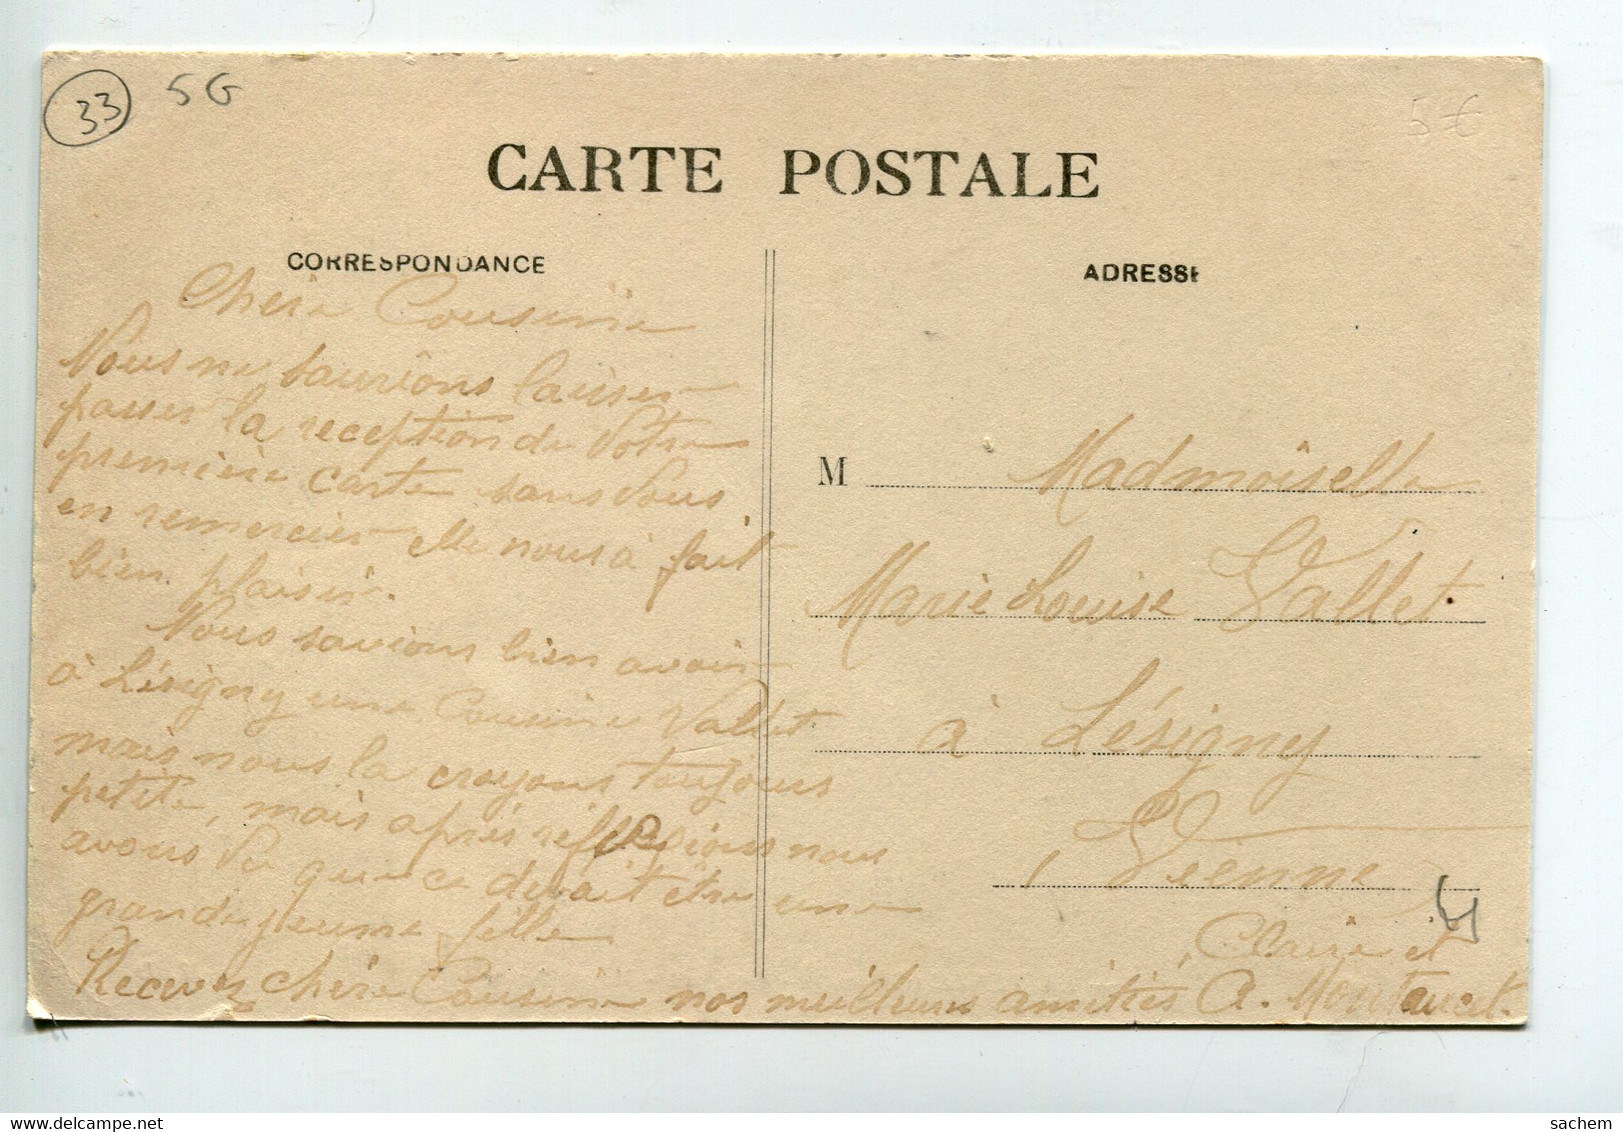 33 5G
5€
CARTE POSTALE
CORRESPONDANCE
ADRESSE
Chère Cousine
Nous ne saurions laisser
passer la reception de Votre
première carte sans Vous
en remercier elle nous à fait
bien plaisir.
Nous savions bien avoir
à Lésigny une Cousine Vallet
mais nous la croyons toujours
petite, mais après réflexions nous
avons Vu que ce devait être une
grande jeune fille
Recevez chère Cousine nos meilleures amitiés
Claire et
A. Montaucet.
M Madmoiselle
Marie Louise Vallet
à Lésigny
Vienne
sachem